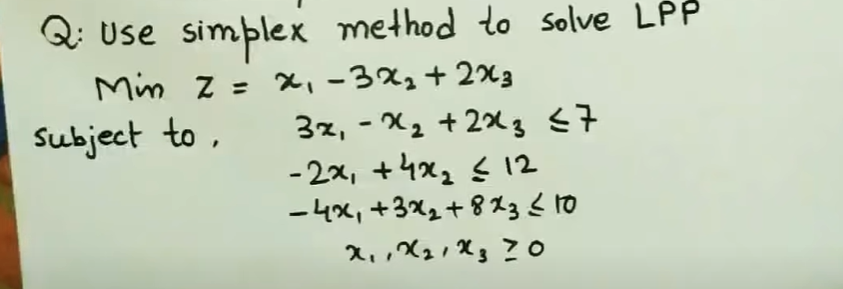 Q: Use simplex method to solve LPP
Min Z = x₁ - 3x₂ + 2x₃
subject to, 3x₁ - x₂ + 2x₃ ≤ 7
-2x₁ + 4x₂ ≤ 12
-4x₁ + 3x₂ + 8x₃ ≤ 10
x₁, x₂, x₃ ≥ 0